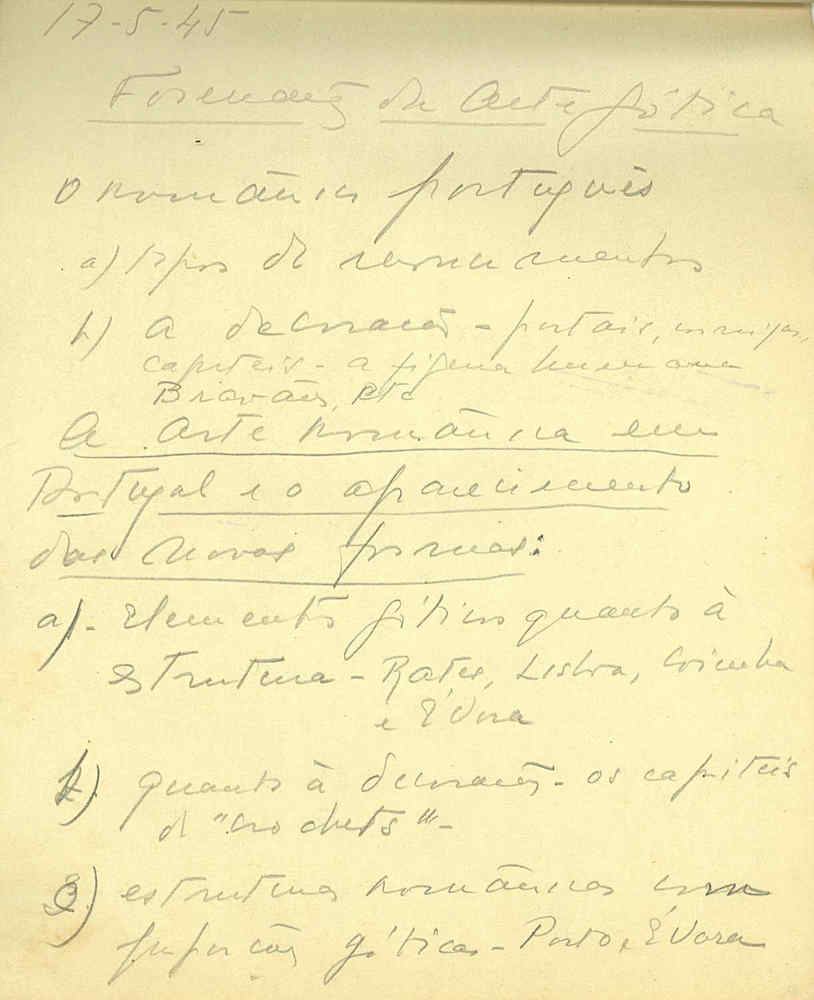 17-5-45
Formação da Arte gótica
O românico português
a) tipos de monumentos
b) a decoração - portais, cornijas,
capiteis - a figura humana
Bravães, etc
A Arte românica em
Portugal e o aparecimento
das novas formas:
a) - Elementos góticos quanto à
estrutura - Rates, Lisboa, Coimbra
e Évora
b) quanto à decoração - os capiteis
d "crochets" -
c) estruturas românicas com
proporções góticas - Porto, Évora